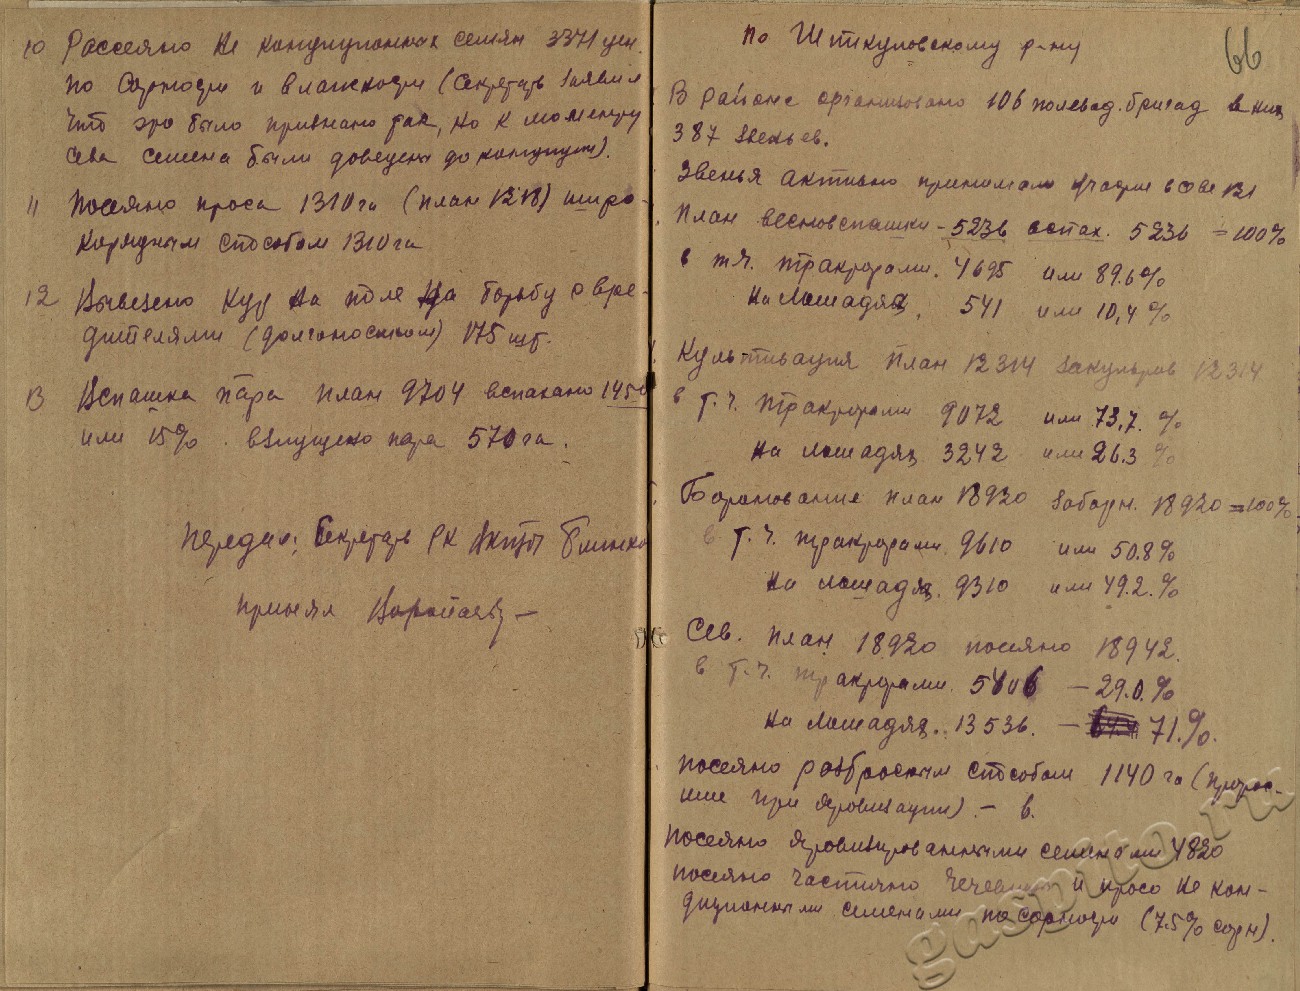 10 Рассеяно не кондиционных семян 3371 цен.
по сортности и влажности (секретарь заявил
что это было признано так, но к моменту
сева семена были доведены до кондиции).
11 Посеяно проса 1310 га (план 1218) широ-
корядным способом 1310 га
12 Вывезено кур на поле на борьбу с вре-
дителями (долгоносиком) 175 шт.
13 Вспашка пара план 9704 вспахано 145
или 15%. взлущено пара 570 га.
передал: Секретарь РК
принял
по Штикуловскому р-ну
66
В районе организовано 106 полевод. бригад в них
387 звеньев.
Звенья активно принимали участие в севе 121
План весновспашки - 5236 вспах. 5236 = 100%
в т.ч. тракторами. 4695 или 89.6%
на лошадях. 541 или 10,4%
Культивация план 12314 закультив 12314
в т.ч. тракторами 9072 или 73,7.%
на лошадях 3242 или 26.3%
Боронование план 18920 заборон. 18920 = 100%
в т.ч. тракторами. 9610 или 50.8%
на лошадях. 9310 или 49.2.%
Сев. план 18920 посеяно 18942.
в т.ч. тракторами. 5406 - 29.0.%
на лошадях. 13536. - 71.%.
посеяно разбросным способом 1140 га (пророс-
шие при яровизации). - в.
посеяно яровизированными семенами 4820
посеяно частично чечевица и просо не кон-
диционными семенами по сортности (75% сорн).
gaspito.ru